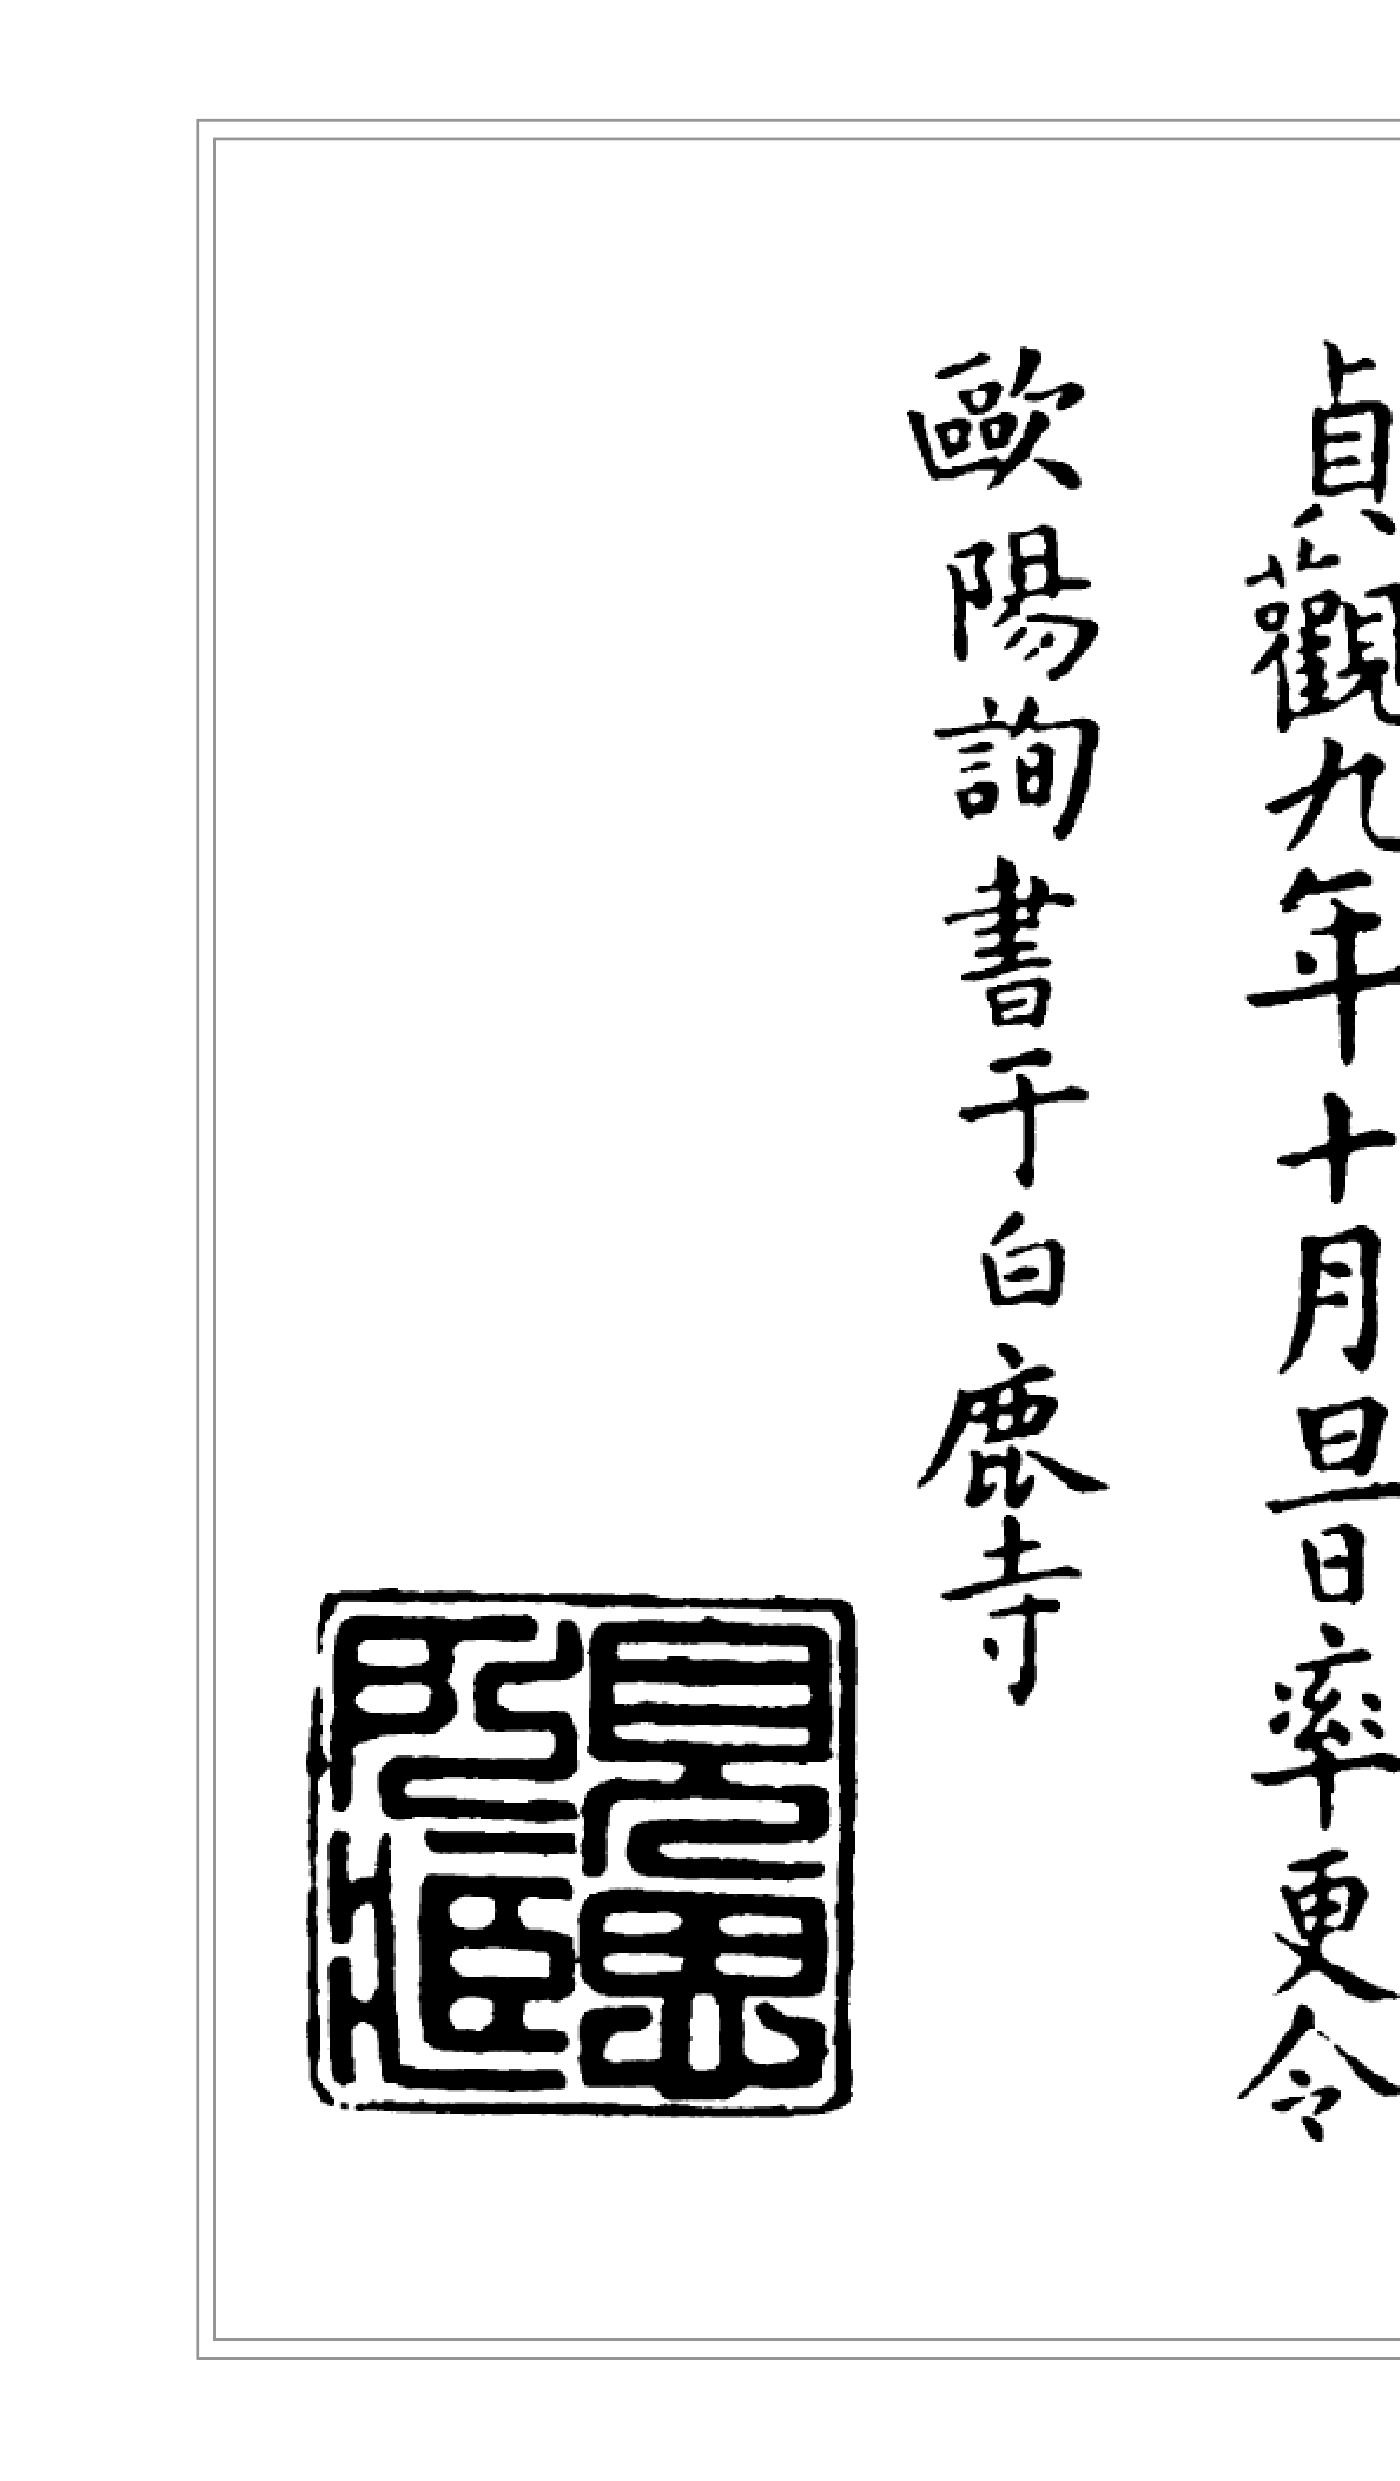 貞觀九年十月旦日率更令
歐陽詢書于白鹿寺